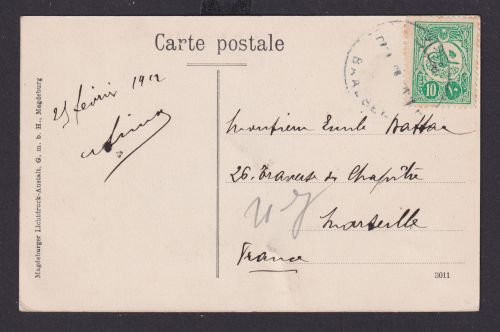 Carte postale
10
25 février 1912
Monsieur Emile
26, Traverse du Chapitre
Marseille
France
Magdeburger Lichtdruck-Anstalt, G. m. b. H., Magdeburg
3011